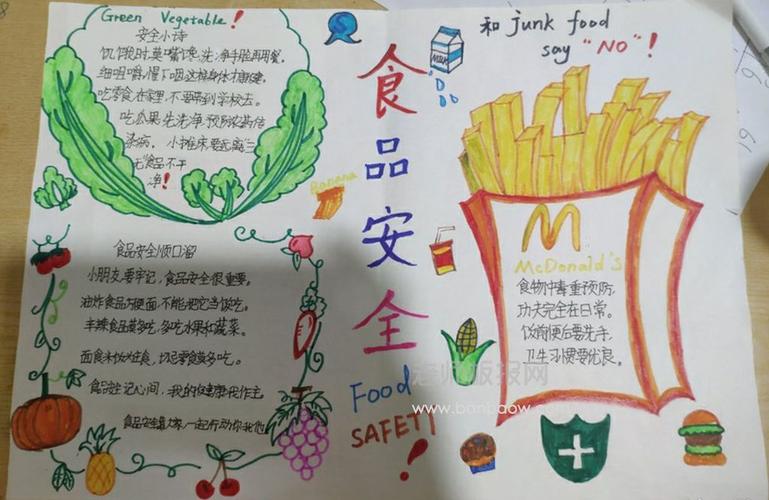 Green Vegetable!
安全小诗
饥饿时,莫嘴馋,洗净手脸再用餐。
细咀嚼,慢下咽这样身体才健康。
吃零食,在家里,不要带到学校去。
吃瓜果,先洗净,预防农药传
染病。小摊床要远离三
无食品不干
净!
食品安全顺口溜
小朋友,要牢记,食品安全很重要。
油炸食品方便面,不能把它当饭吃。
辛辣食品莫多吃,多吃水果和蔬菜。
面食米饭为主食,切忌零食莫多吃。
食品安全记心间,我的健康我作主。
食品安全靠大家,一起行动你我他。
Banana
食品安全
Food
SAFETY
!
MILK
和 junk food
say "NO"!
M
McDonald's
食物中毒重预防,
功夫完全在日常。
饭前便后要洗手,
卫生习惯要优良。
老师板报网
www.banbaow.com